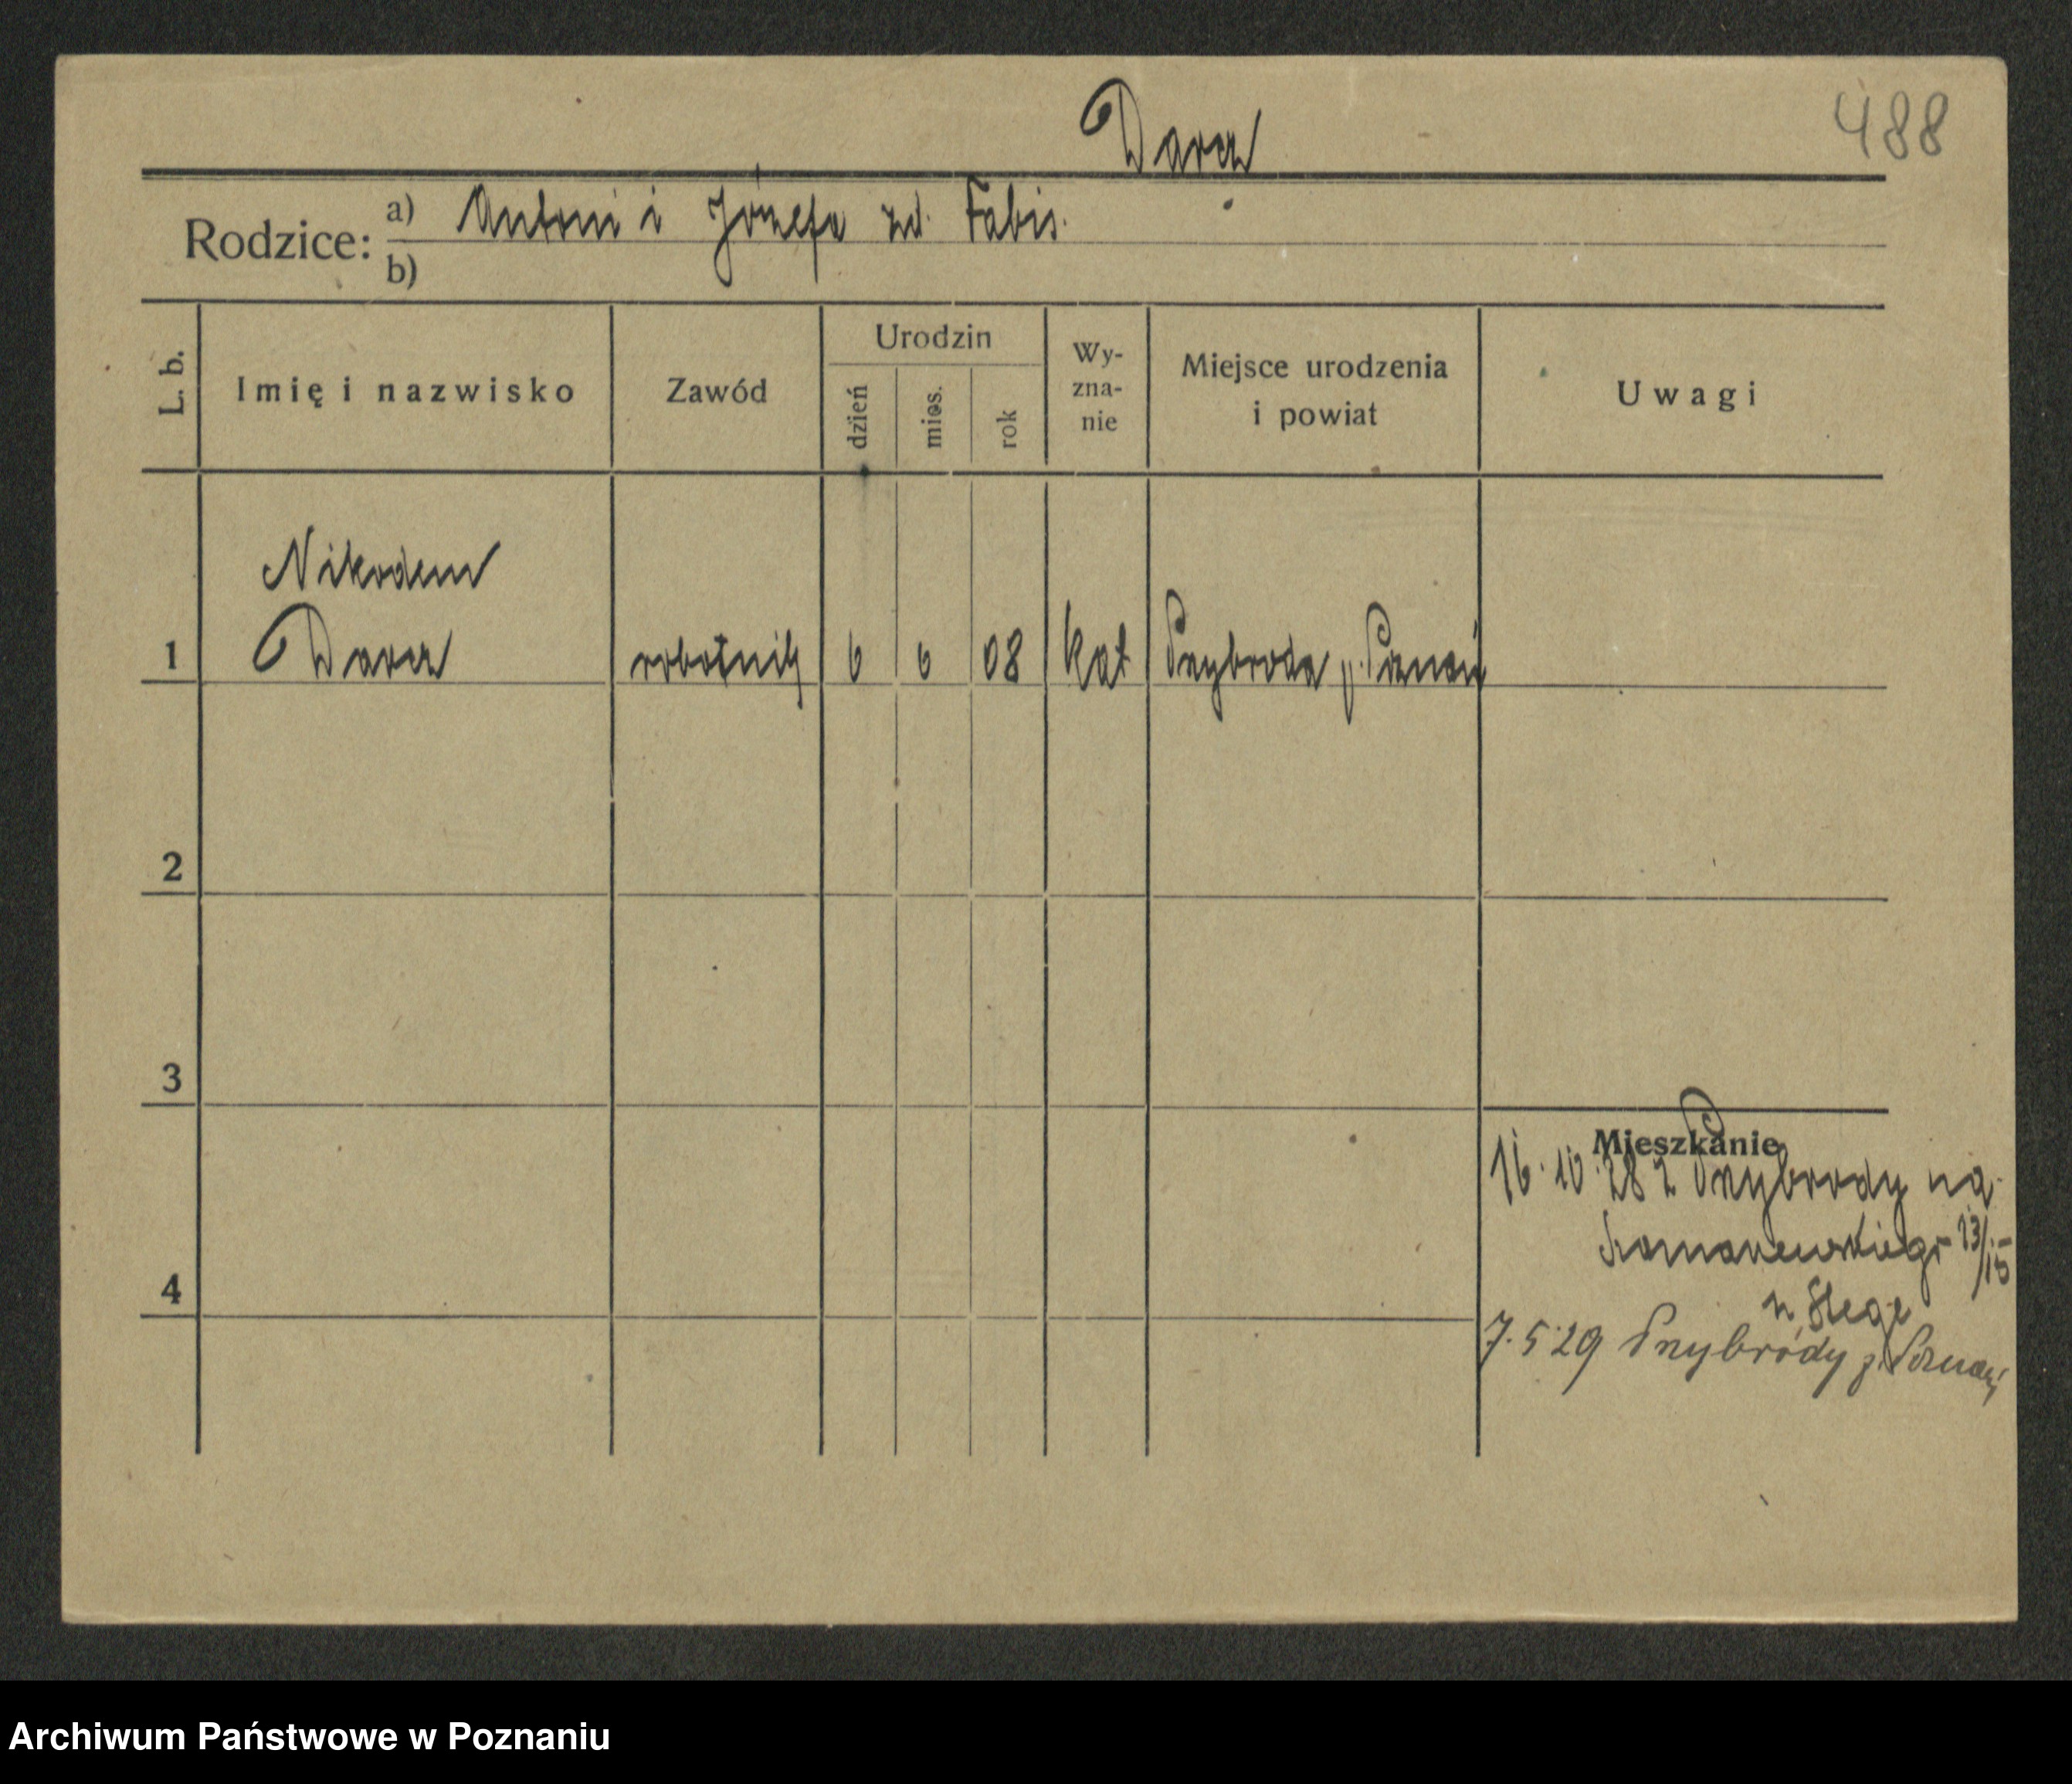 Dara
488
Rodzice: a) Antoni i Józefa zd. Fabis.
b)
L. b. Imię i nazwisko Zawód Urodzin dzień mies. rok Wy-zna-nie Miejsce urodzenia i powiat Uwagi
Nikodem
1 Dara robotnik 6 6 08 kat Przybroda p. Poznań
2
3
Mieszkanie
16.10.28 z Przybrody na
13/15
4
7.5.29 Przybródy p. Poznań
Archiwum Państwowe w Poznaniu